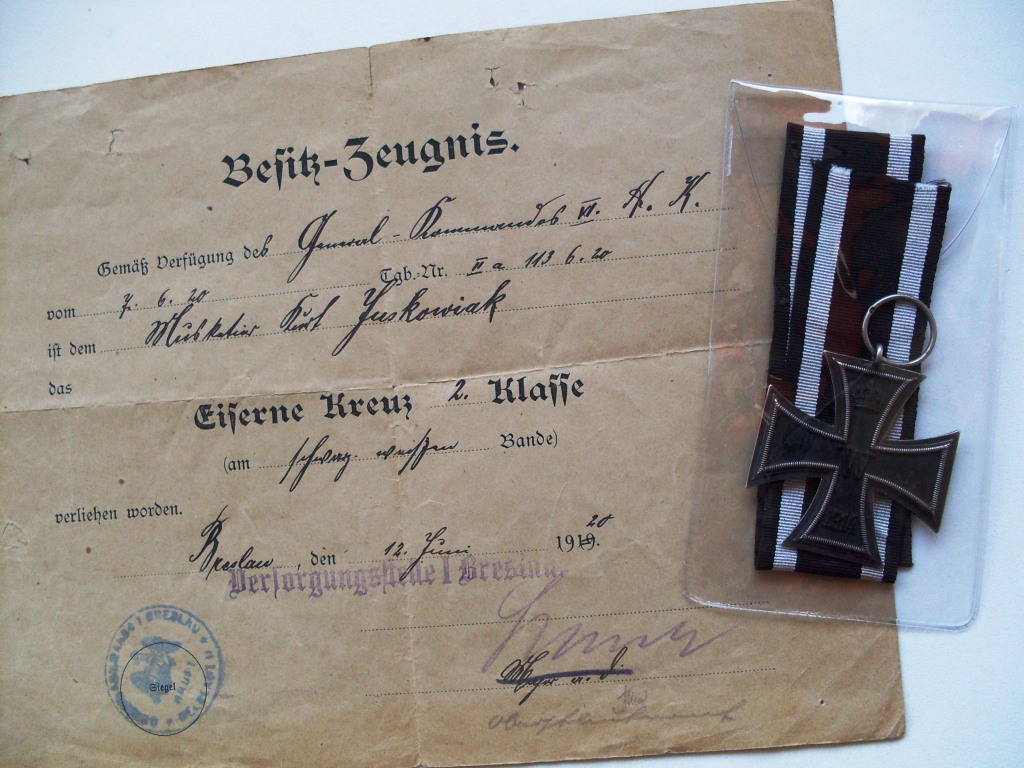 Besitz-Zeugnis.
Gemäß Verfügung des General-Kommandos VI. A. K.
vom 7. 6. 20 Tgb.-Nr. II a 113 6. 20
ist dem Musketier Kurt Juskowiak
das
Eiserne Kreuz 2. Klasse
(am schwarz. weißen Bande)
verliehen worden.
Breslau, den 12. Juni 1919. 20
Versorgungsstelle I Breslau
Major a. D.
BRESLAU
Siegel
1914